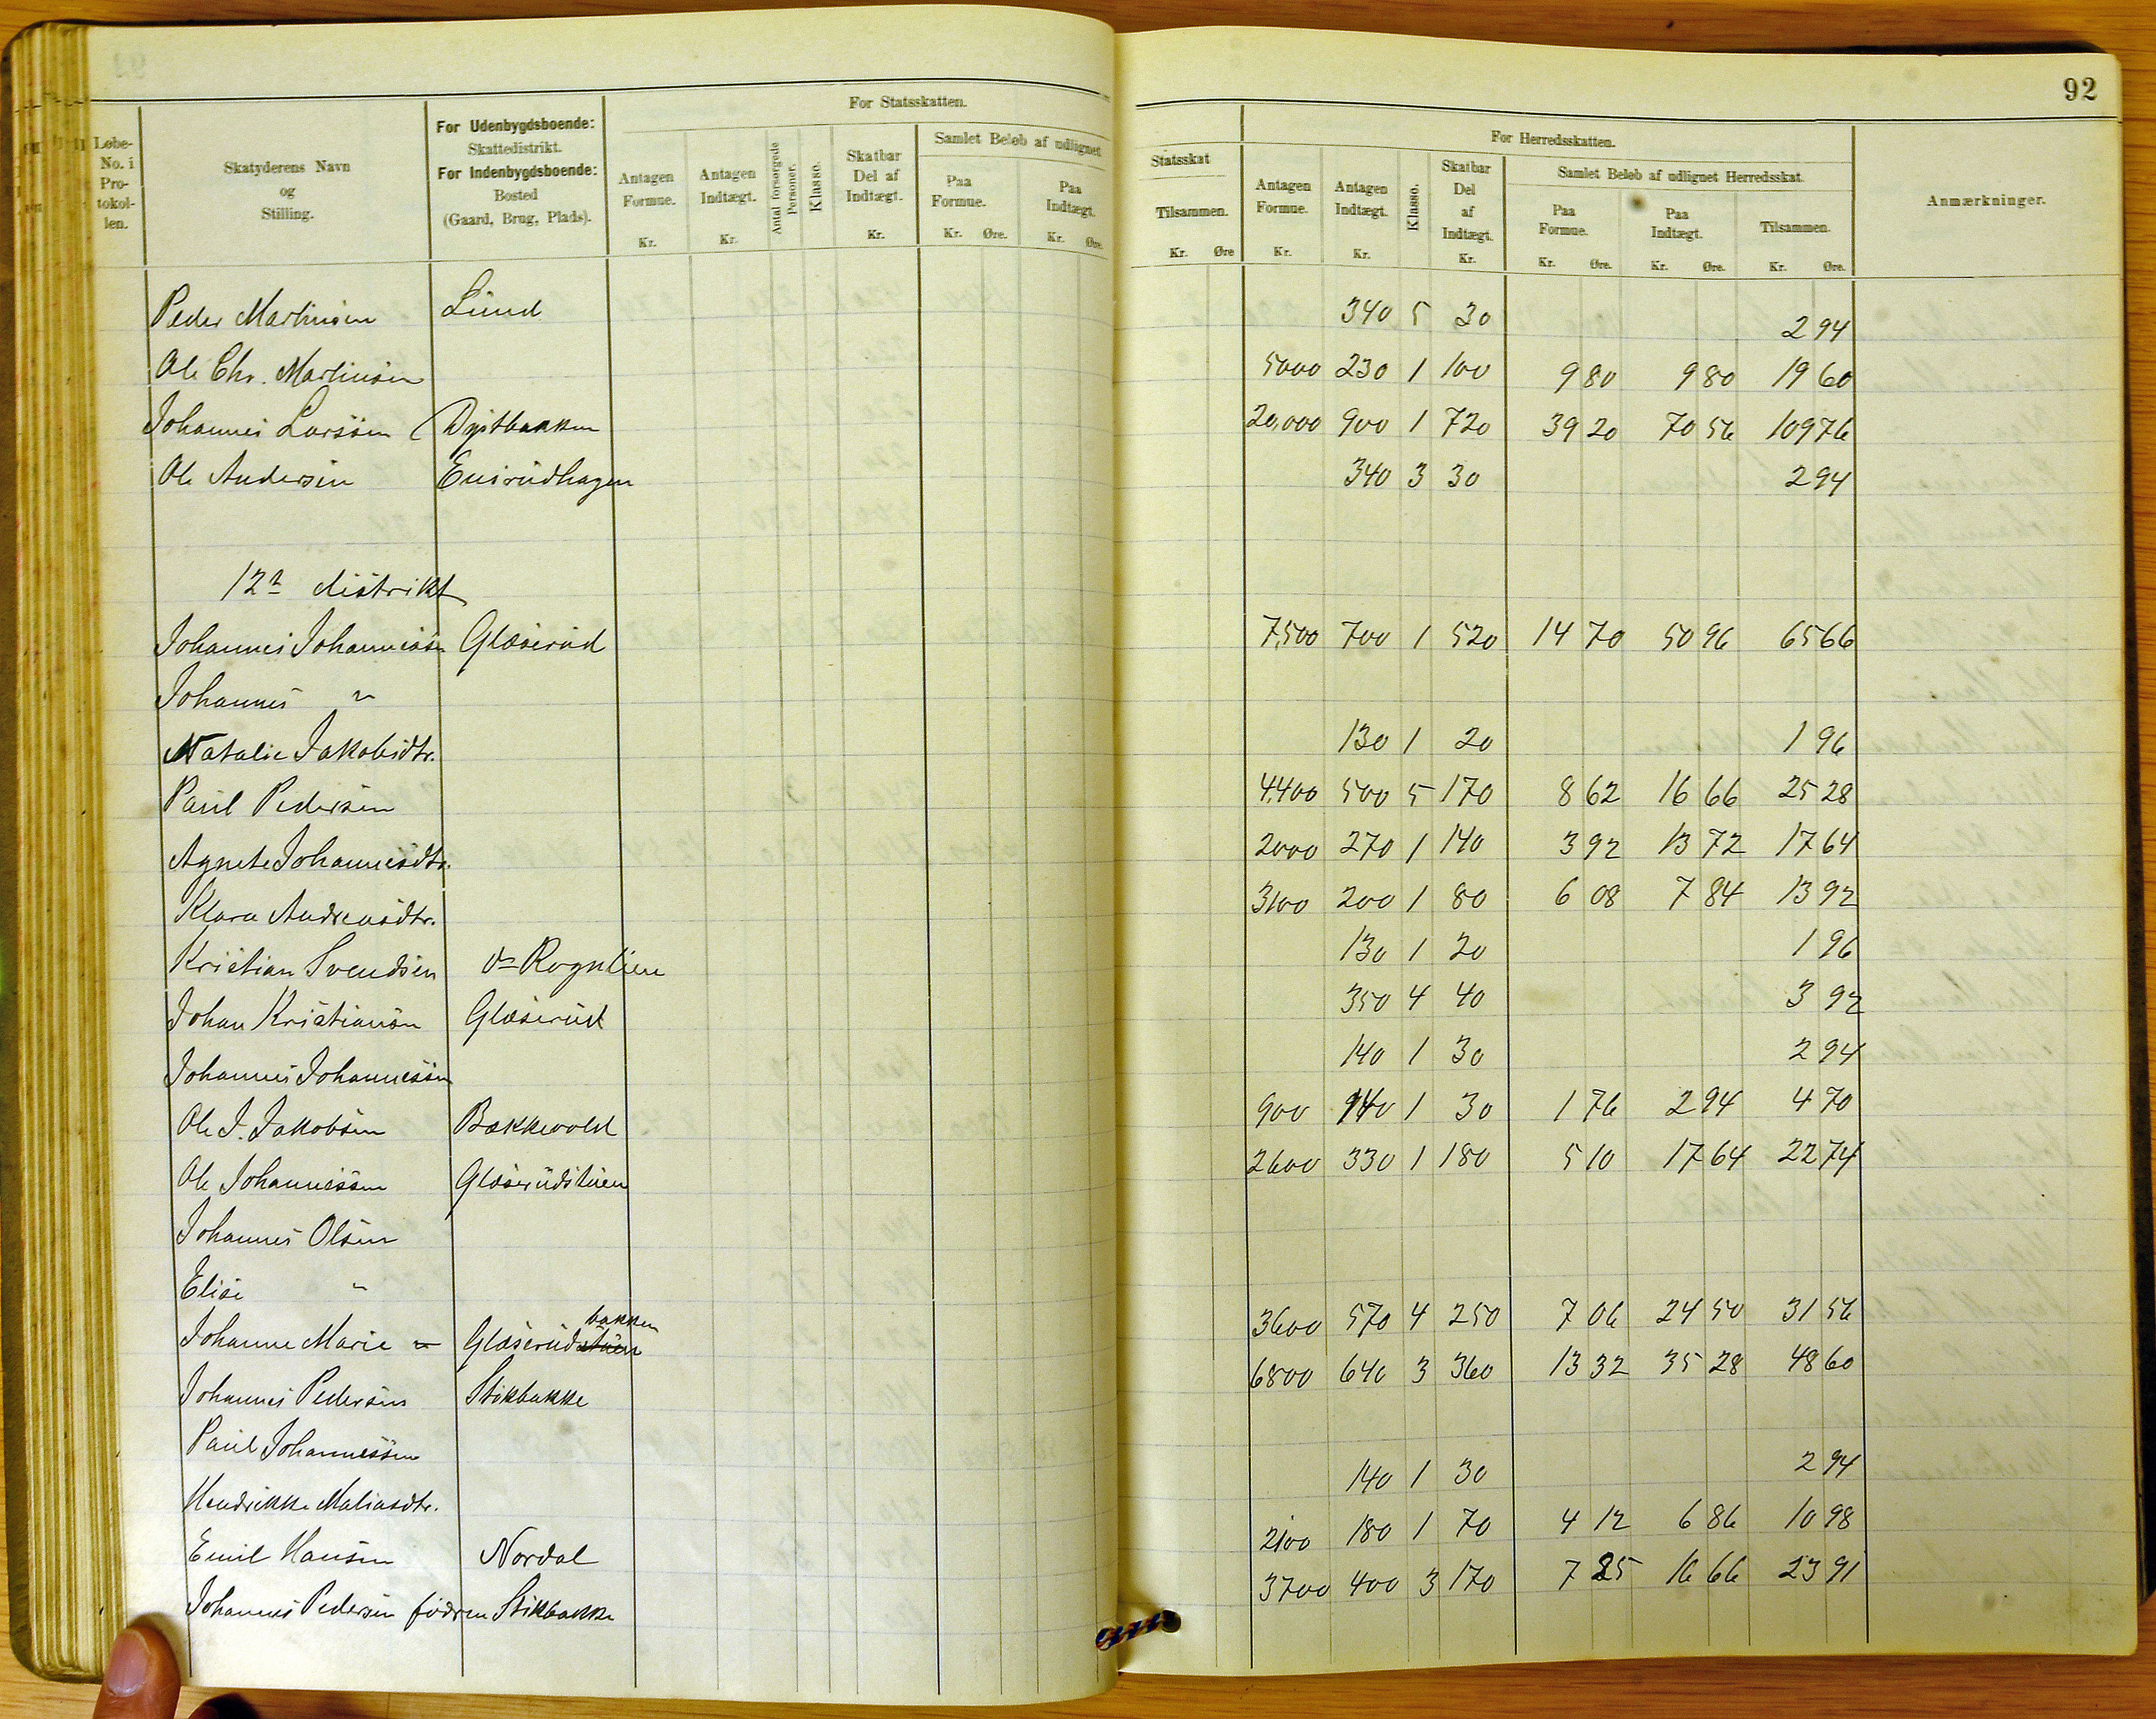 92
Løbe-No. i Pro-tokol-len.
Skatyderens Navn og Stilling.
For Udenbygdsboende: Skattedistrikt. For Indenbygdsboende: Bosted (Gaard, Brug, Plads).
For Statsskatten.
Antagen Formue. Kr.
Antagen Indtægt. Kr.
Antal forsørgede Personer.
Klasse.
Skatbar Del af Indtægt. Kr.
Samlet Beløb af udlignet
Paa Formue. Kr. Øre.
Paa Indtægt. Kr. Øre.
Statsskat
Tilsammen. Kr. Øre
For Herredsskatten.
Antagen Formue. Kr.
Antagen Indtægt. Kr.
Klasse.
Skatbar Del af Indtægt. Kr.
Samlet Beløb af udlignet Herredsskat.
Paa Formue. Kr. Øre.
Paa Indtægt. Kr. Øre.
Tilsammen. Kr. Øre.
Anmærkninger.
Peder Martinsen Lund 340 5 30 2 94
Ole Chr. Martinsen 5000 230 1 100 9 80 9 80 19 60
Johannes Larssen Dystbakken 20,000 900 1 720 39 20 70 56 109 76
Ole Andersen Ensrudhagen 340 3 30 2 94
12te distrikt
Johannes Johannessen Glæserud 7,500 700 1 520 14 70 50 96 65 66
Johannes "
Natalie Jakobsdtr. 130 1 20 1 96
Paul Pedersen 4,400 500 5 170 8 62 16 66 25 28
Agnete Johannesdtr. 2000 270 1 140 3 92 13 72 17 64
Klara Andreasdtr. 3100 200 1 80 6 08 7 84 13 92
Kristian Svendsen Rognlien 130 1 20 1 96
Johan Kristiansen Glæserud 350 4 40 3 92
Johannes Johannessen 140 1 30 2 94
Ole J. Jakobsen Bækkevold 900 140 1 30 1 76 2 94 4 70
Ole Johannessen Glæserudstuen 2600 330 1 180 5 10 17 64 22 74
Johannes Olsen
Elise "
Johanne Marie " Glæserudstuen bakken 3600 570 4 250 7 06 24 50 31 56
Johannes Pedersen Stikbakke 6800 640 3 360 13 32 35 28 48 60
Paul Johannessen
Hendrikke Matiasdtr. 140 1 30 2 94
Emil Hansen Nordal 2100 180 1 70 4 12 6 86 10 98
Johannes Pedersen Stikbakke 3700 400 3 170 7 25 16 66 23 91